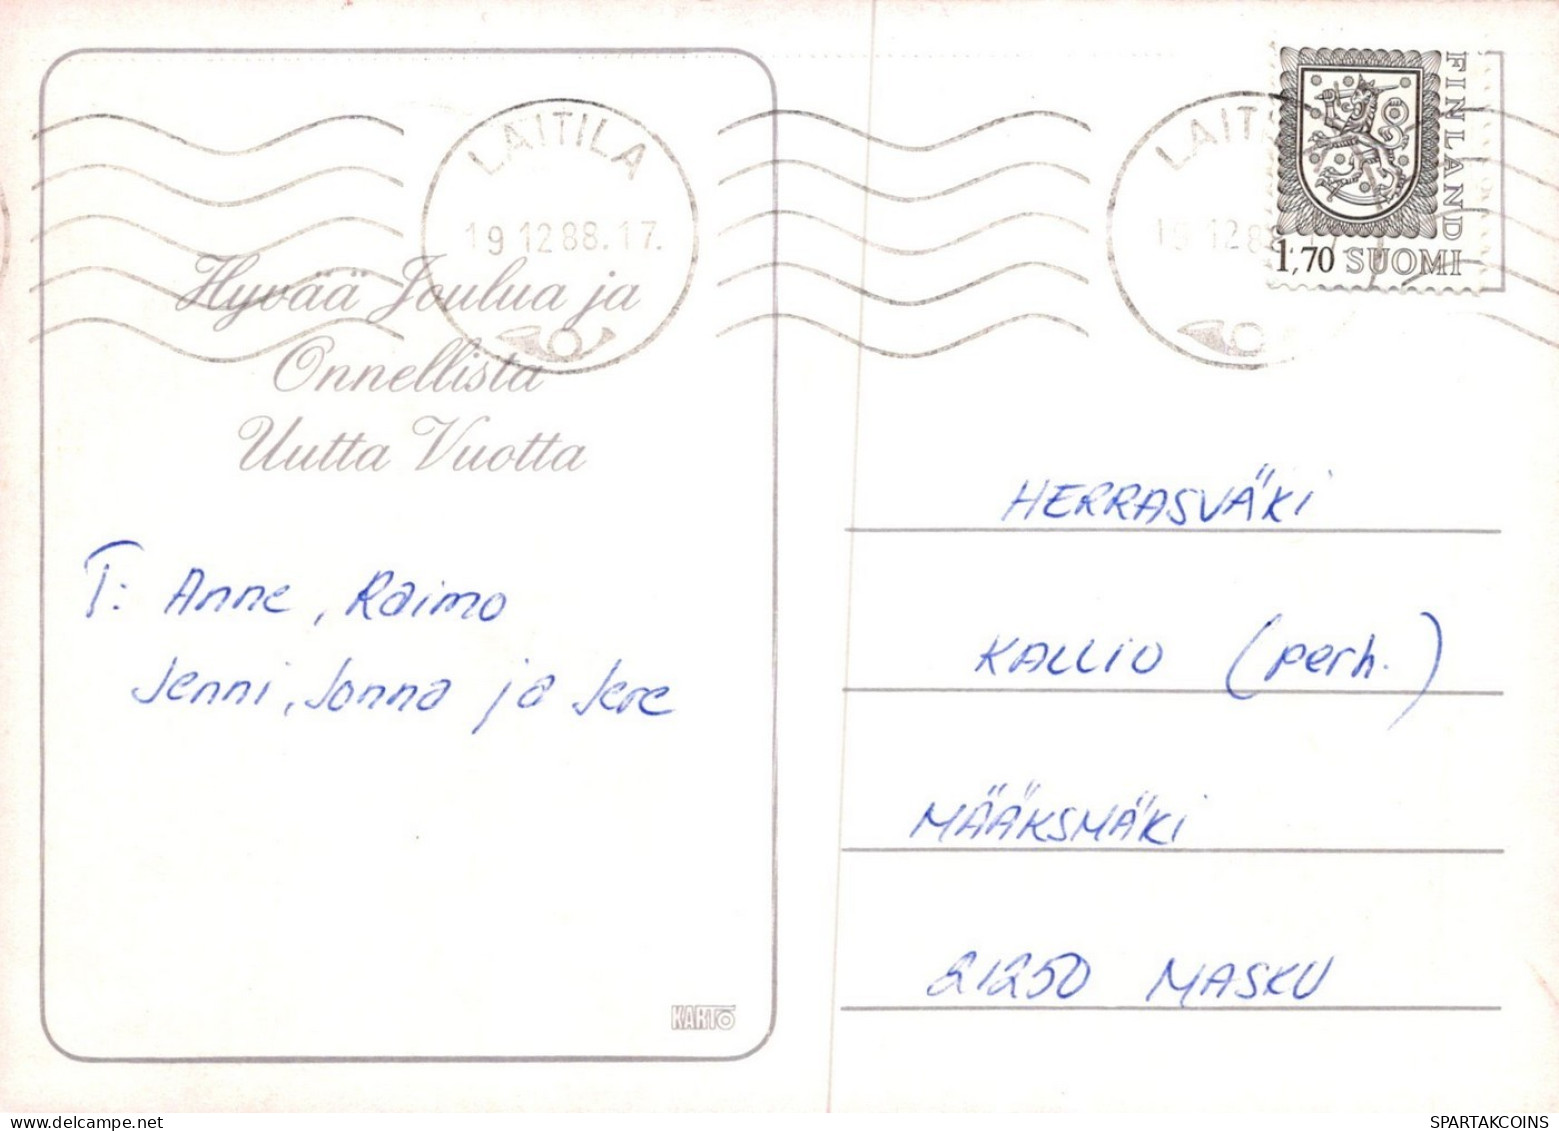 LAITILA
19.12.88.17.
Hyvää Joulua ja
Onnellista
Uutta Vuotta
T: Anne, Raimo
Jenni, Jonna ja Jere
KARTO
LAIT
19 12 88 17
FINLAND
1,70 SUOMI
HERRASVÄKI
KALLIO (perh.)
MÄÄKSMÄKI
21250 MASKU
SPARTAKCOINS